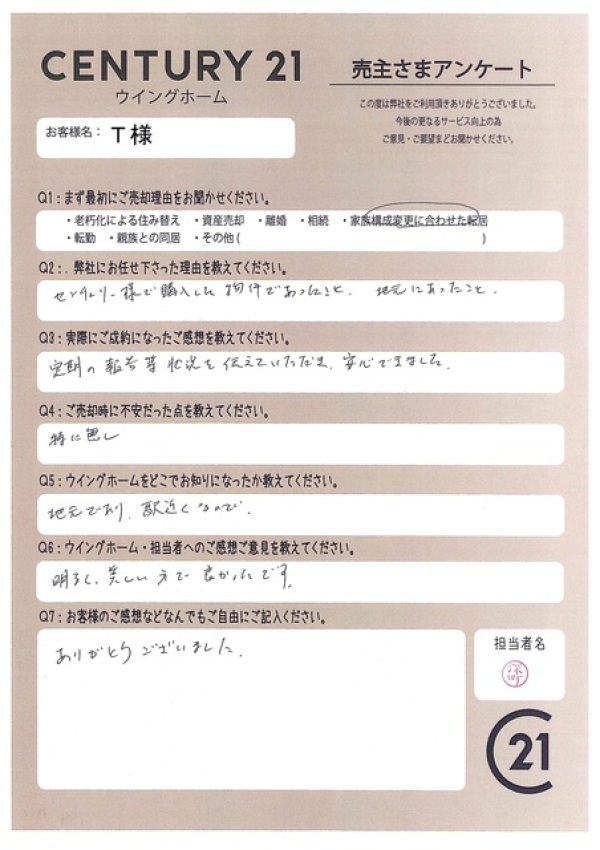 CENTURY 21
ウイングホーム
売主さまアンケート
この度は弊社をご利用頂きありがとうございました。
今後の更なるサービス向上の為
ご意見・ご要望をお聞かせください。
お客様名： T様
Q1：まず最初にご売却理由をお聞かせください。
・老朽化による住み替え ・資産売却 ・離婚 ・相続 ・家族構成変更に合わせた転居
・転勤 ・親族との同居 ・その他 ( )
Q2：. 弊社にお任せ下さった理由を教えてください。
センチュリー様で購入した物件であったこと、地元にあったこと。
Q3：実際にご成約になったご感想を教えてください。
定期の報告等状況を伝えていただき、安心できました。
Q4：ご売却時に不安だった点を教えてください。
特に無し
Q5：ウイングホームをどこでお知りになったか教えてください。
地元であり、駅近くなので。
Q6：ウイングホーム・担当者へのご感想ご意見を教えてください。
明るく、美しい方で良かったです。
Q7：お客様のご感想などなんでもご自由にご記入ください。
ありがとうございました。
担当者名
C21